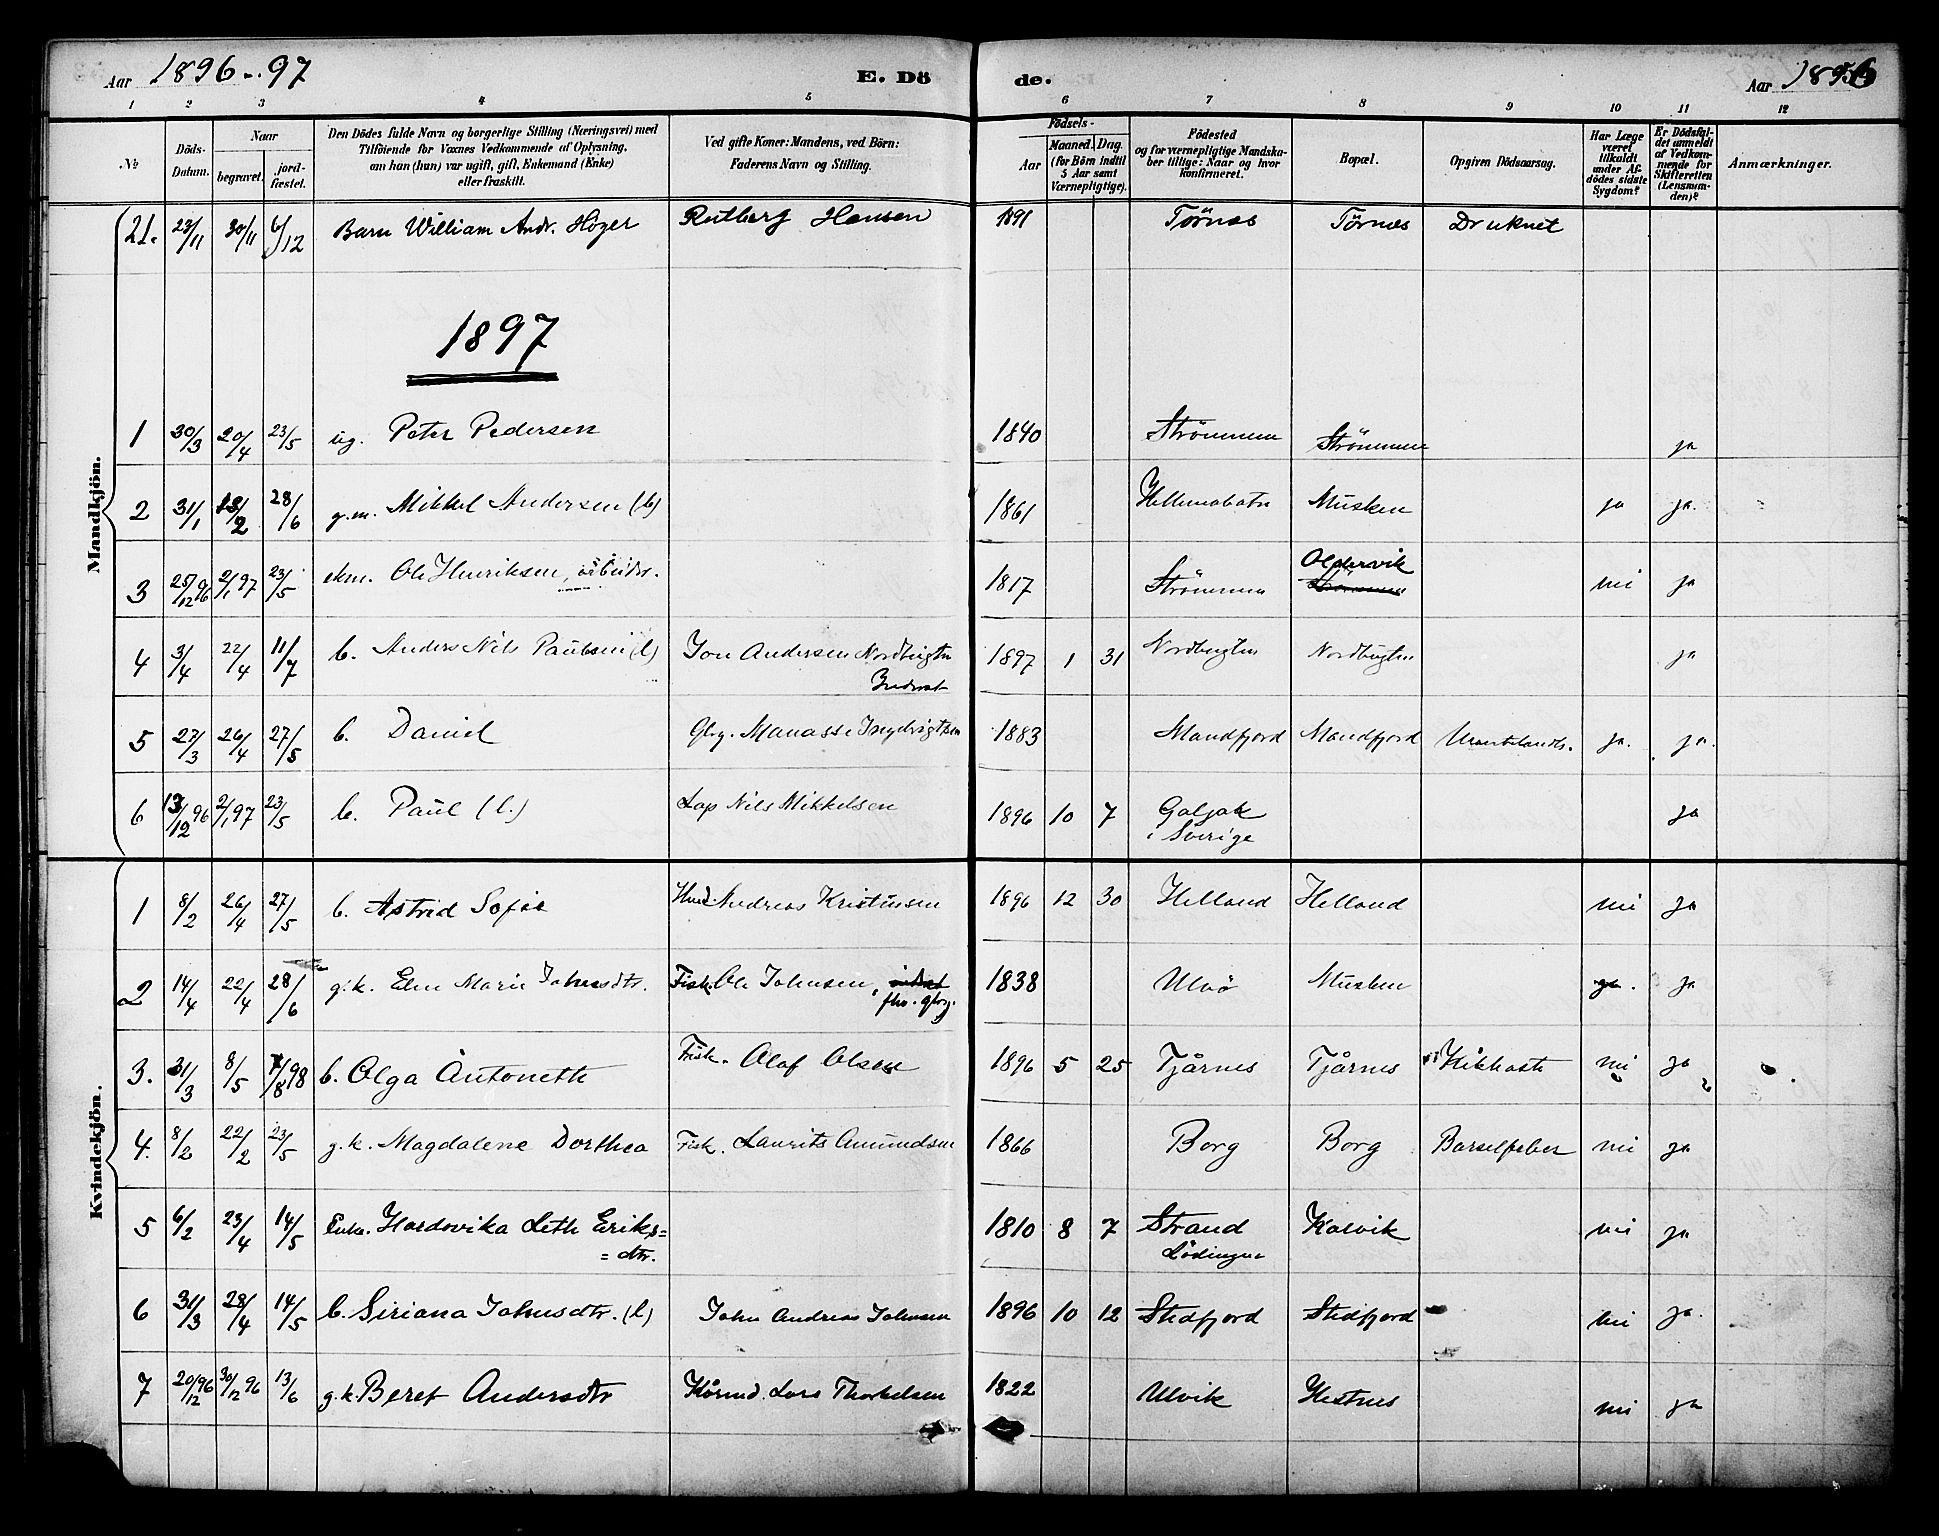 Aar 1896-97 E. Dö
de. Aar 1896
1 2 3 4 5
6 7 8 9 10 11 12
№ Döds-Datum. Naar begravet. jord-fæstet. Den Dödes fulde Navn og borgerlige Stilling (Næringsvei) med Tilföiende for Voxnes Vedkommende af Oplysning, om han (hun) var ugift, gift, Enkemand (Enke) eller fraskilt. Ved gifte Koner: Mandens, ved Börn: Faderens Navn og Stilling.
Födsels- Aar Maaned. Dag. (for Börn indtil 5 Aar samt Værnepligtige). Födested og for værnepligtige Mandskaber tillige: Naar og hvor konfirmeret. Bopæl. Opgiven Dödsaarsag. Har Læge været tilkaldt under Afdödes sidste Sygdom? Er Dödsfaldet anmeldt af Vedkommende for Skifteretten (Lensmanden)? Anmærkninger.
Mandkjön.
21. 23/11 30/11 6/12 Barn William Andr. Höger Rutberg Hansen 1891 Törnes Törnes Druknet
1897
1 30/3 20/4 23/5 ug. Peter Pedersen 1840 Strömmen Strömmen ja
2 31/1 13/2 28/6 g.m. Mikkel Andersen (l) 1861 Musken ja ja.
3 25/12 96 2/1 97 23/5 ekm. Ole Henriksen, arbeider. 1817 Strömmen Oldervik nei ja
4 3/4 22/4 11/7 b. Anders Nils Paulsen (l) Jon Andersen Nordbugten
Inderst 1897 1 31 Nordbugten Nordbugten ja
5 27/3 26/4 27/5 b. Daniel Gbr. Manasse Ingebrigtsen 1883 Mandfjord Mandfjord ja. ja.
6 13/12 96 2/1 97 23/5 b. Paul (l.) Lap Nils Mikkelsen 1896 10 7 Goljok
i Sverige ja
Kvindekjön.
1 8/2 26/4 27/5 b. Astrid Sofie Hmd. Andreas Kristensen 1896 12 30 Helland Helland nei ja
2 14/4 22/4 28/6 g.k. Elen Marie Johnsdtr. Fisk. Ole Johnsen, inderst
fhv. gbrg. 1838 Ulvö Musken ja. ja
3. 31/3 8/5 7/8 98 b. Olga Antonette Fisk. Olaf Olsen 1896 5 25 Tjårnes Tjårnes Kikhoste nei ja
4. 8/2 22/2 23/5 g.k. Magdalene Dorthea Fisk. Laurits Amundsen 1866 Borg Borg Barselfeber nei ja
5 6/2 23/4 14/5 Enke. Hardovika Leth Eriks=
=dtr. 1810 8 7 Strand
Lödingen Kalvik nei ja
6 31/3 28/4 14/5 b. Siriana Johnsdtr. (l) John Andreas Johnsen 1896 10 12 Stedfjord Stedfjord nei ja.
7 20/12 96 30/12 96 13/6 g.k. Beret Andersdtr Kårmd. Lars Thorkelsen 1822 Ulvik Hestnes nei ja